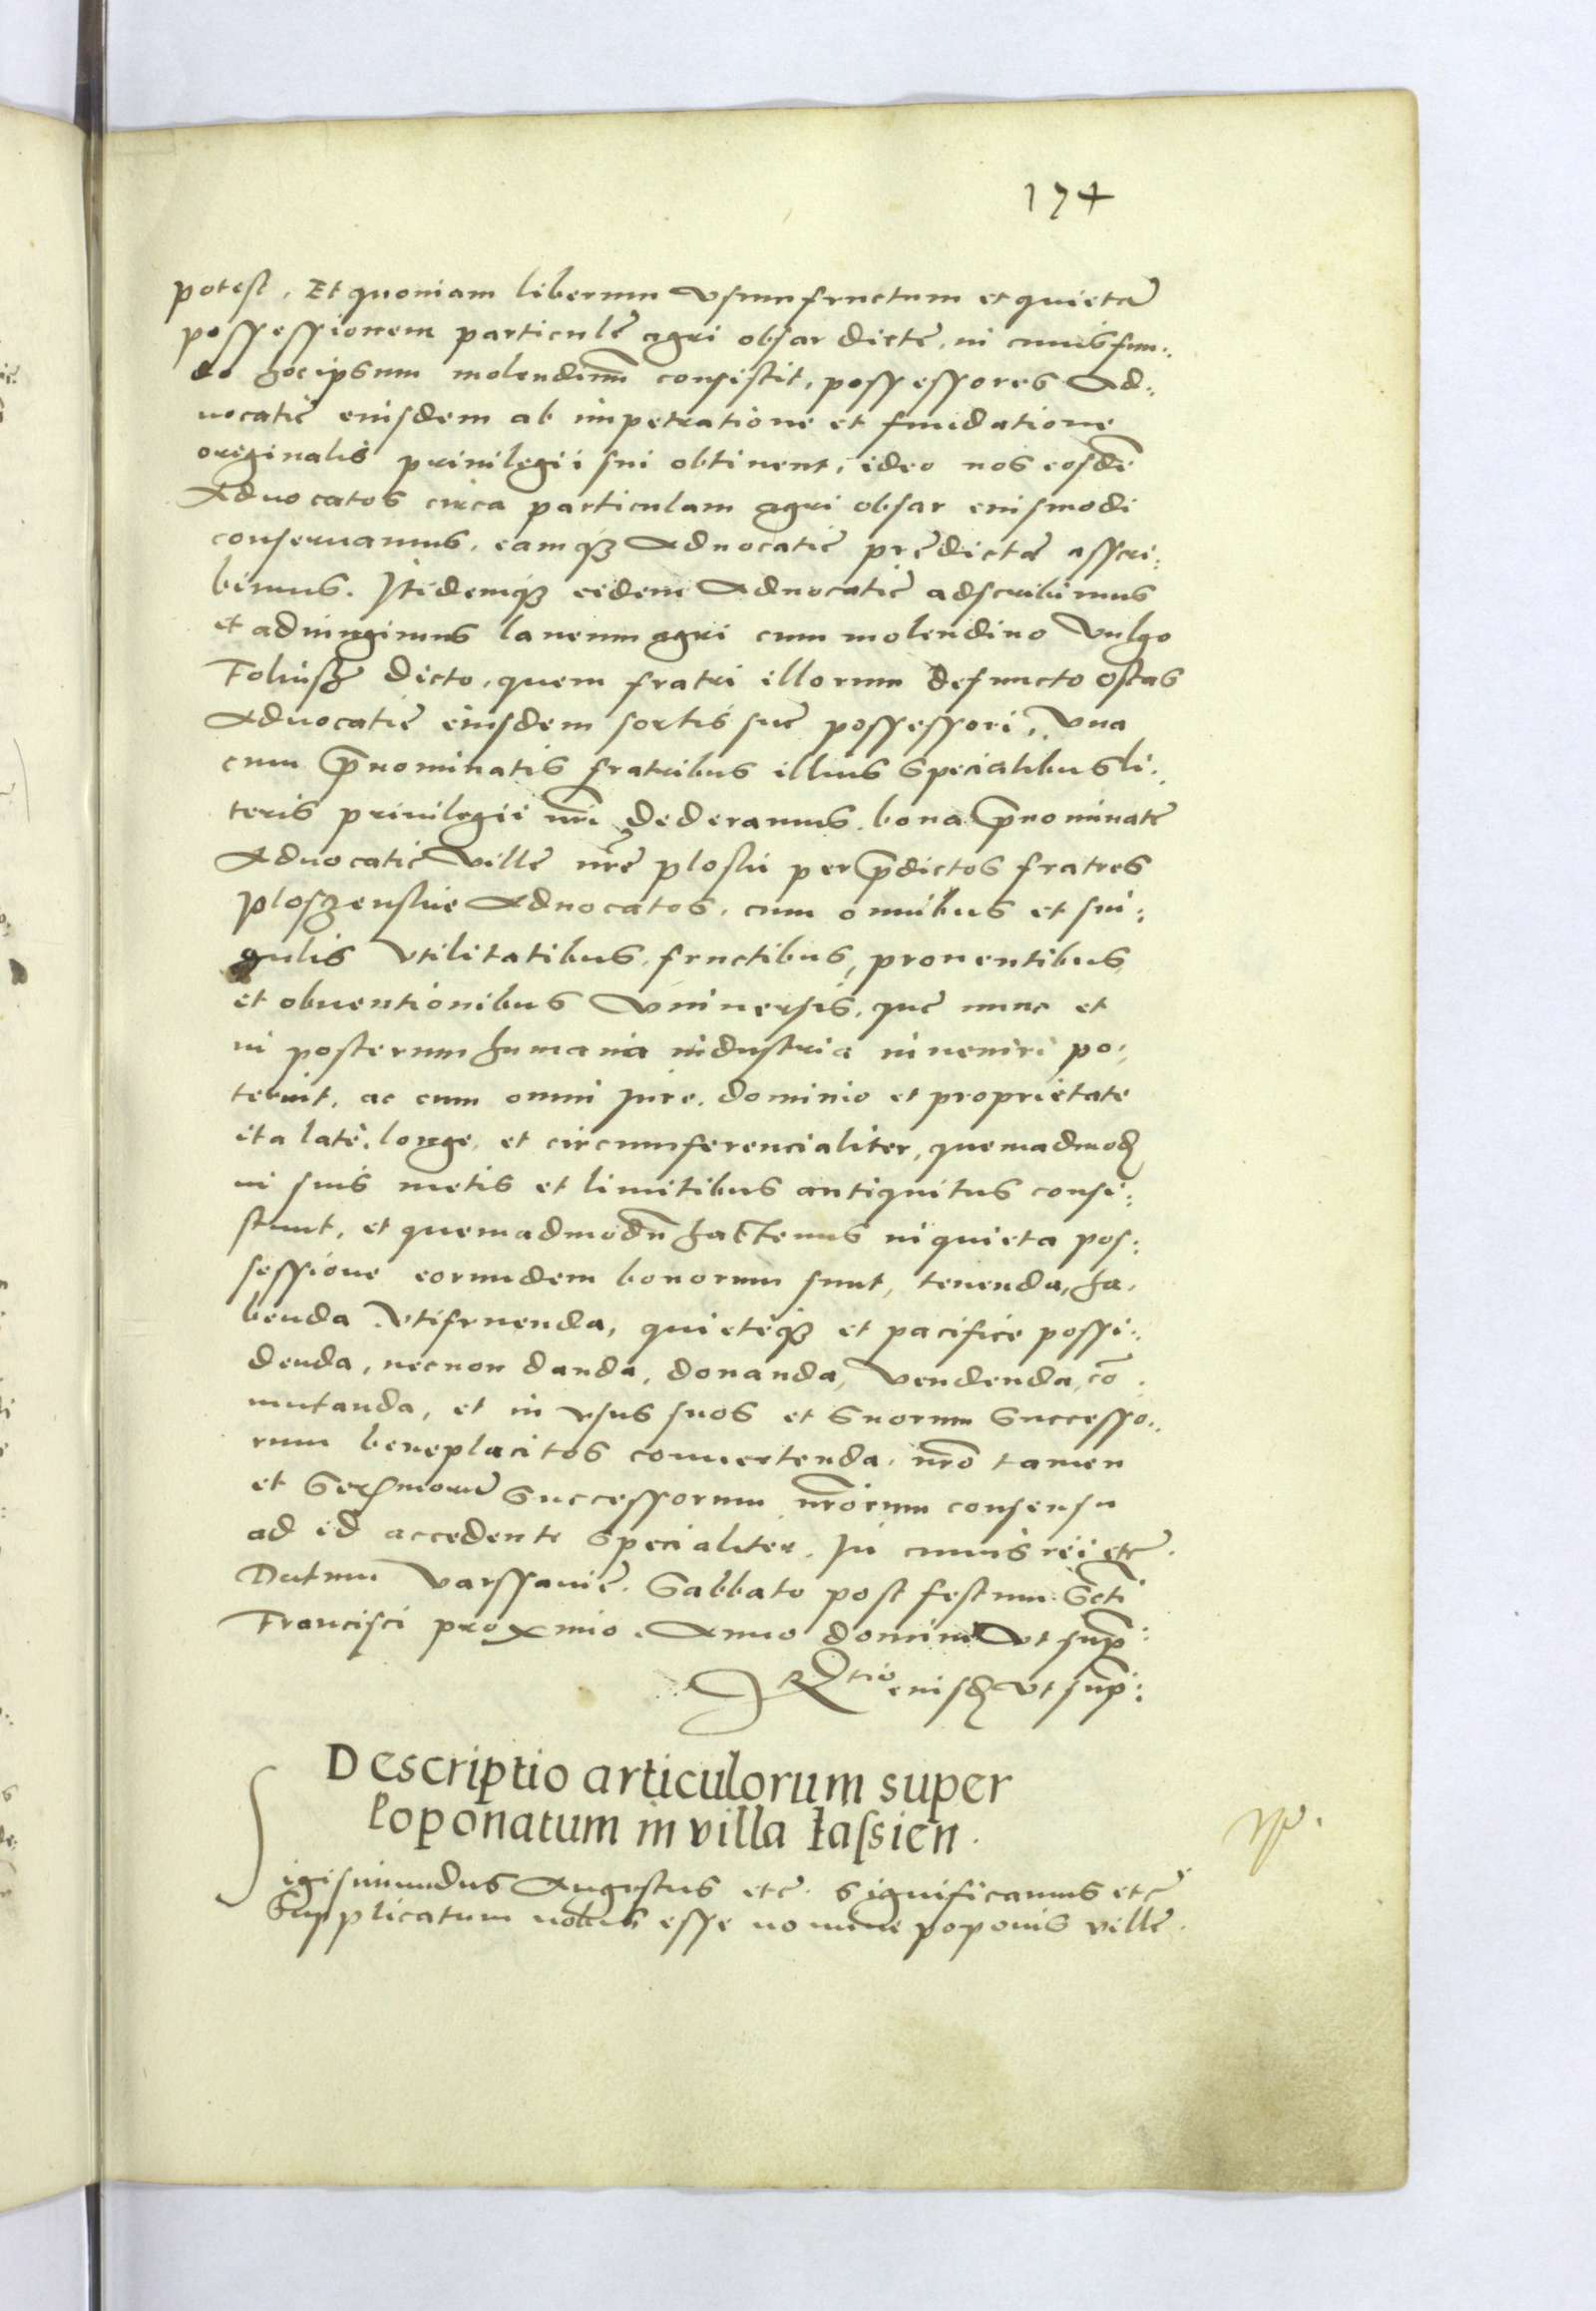 174
potest. Et quoniam liberum vsumfructum et quietā
possessionem particulę agri obsar dictę, in cuius fun:
do hocipsum molendinū consistit, possessores Ad:
uocatię eiusdem ab impetratione et fundatione
originalis priuilegii sui obtinent, ideo nos eosdē
Aduocatos circa particulam agri obsar eiusmodi
conseruamus, eamqȝ Aduocatię prędictę asscri:
bimus. Itidemqȝ eidem Aduocatię adscribimus
et adiungimus laneum agri cum molendino vulgo
Foliusch dicto, quem fratri illorum defuncto ostas
Aduocatię eiusdem sortis suę possessori, vna
cum p̄nominatis fratribus illius specialibus li:
teris priuilegii nr̄i dederamus. bona p̄nominatę
Aduocatię villę nr̄ę plosky per p̄dictos fratres
Ploszenskie Aduocatos, cum omnibus et sin:
gulis vtilitatibus, fructibus, prouentibus
et obuentionibus vniuersis, quę nunc et
in posterum humana industria inueniri po:
terint, ac cum omni iure, dominio et proprietate
ita latè, longe, et circumferencialiter, quemadmod
in suis metis et limitibus antiquitus consi:
stunt, et quemadmodū hactenus in quieta pos:
sessione eorundem bonorum sunt, tenenda, ha:
benda vtifruenda, quietèqȝ et pacifice possi:
denda, necnon danda, donanda, vendenda, cō:
mutanda, et in vsus suos et suorum successo:
rum beneplacitos conuertenda. nr̄o tamen
et Serͫorum Successorum nr̄orum consensu
ad id accedente specialiter. In cuius rei etc.
Datum varssauię. Sabbato post festum Scti
Francisci proximo. Anno domini vt sup:
Rtio eiusd vt sup:
Descriptio articulorum super
poponatum in villa Łassien.
Sigismundus Augustus etc. significamus etc
Supplicatum nobis esse nomine poponis villę.